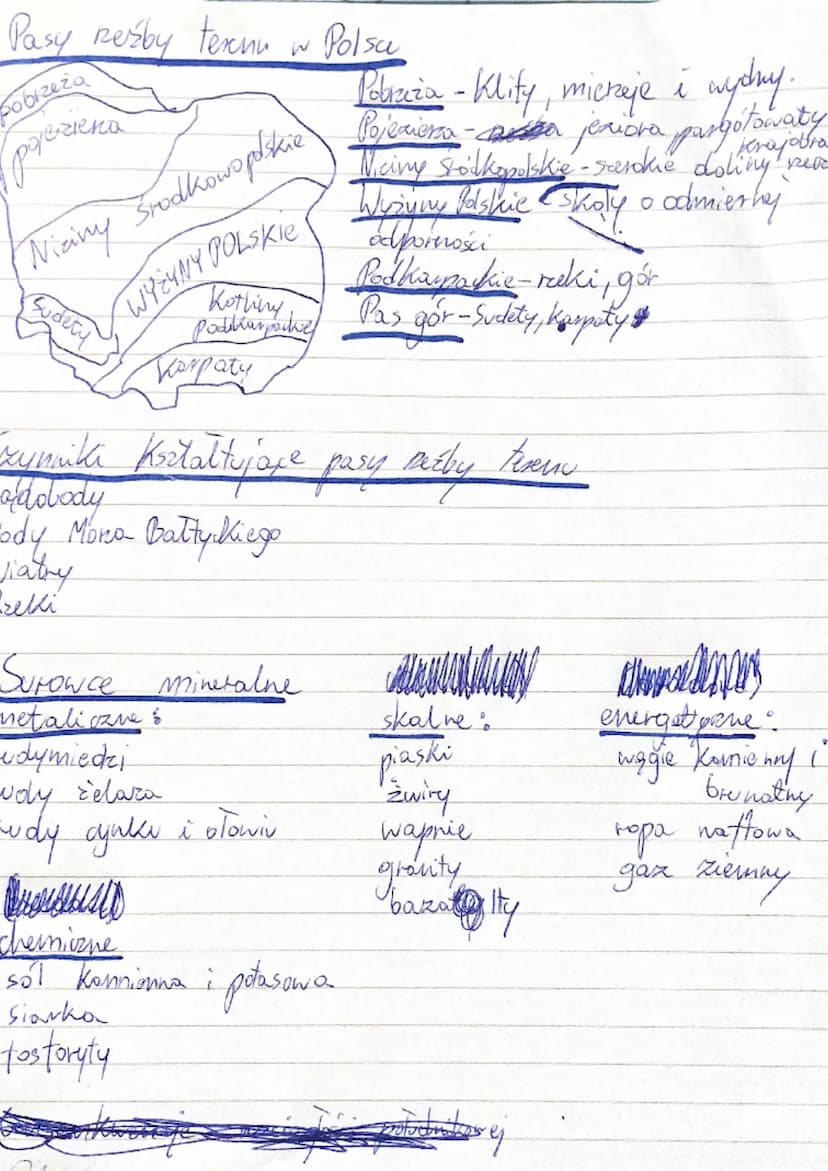 Pasy rzeźby terenu w Polsce
pobrzeża
pojezierza
Niziny Środkowopolskie
WYŻYNY POLSKIE
Sudety
Kotliny
podkarpackie
Karpaty
Pobrzeża - Klify, mierzeje i wydmy.
Pojezierza - jeziora pargótowaty
krajobra
Niziny Śródkopolskie - szerokie doliny rzec
Wyżyny Polskie - skały o odmiernej
odporności
Podkarpackie - rzeki, gór
Pas gór - Sudety, Karpaty
zynniki Kształtujące pasy rzeźby terenu
ądolody
ody Morza Bałtyckiego
iatry
rzeki
Surowce mineralne
metaliczne:
udymiedzi
udy żelaza
rudy cynku i ołowiu
skalne:
piaski
żwiry
wapnie
granity
baza lty
energetyczne:
węgie kamienny i
brunatny
ropa naftowa
gaz ziemny
chemiczne
sól kamienna i potasowa
siarka
fosforyty